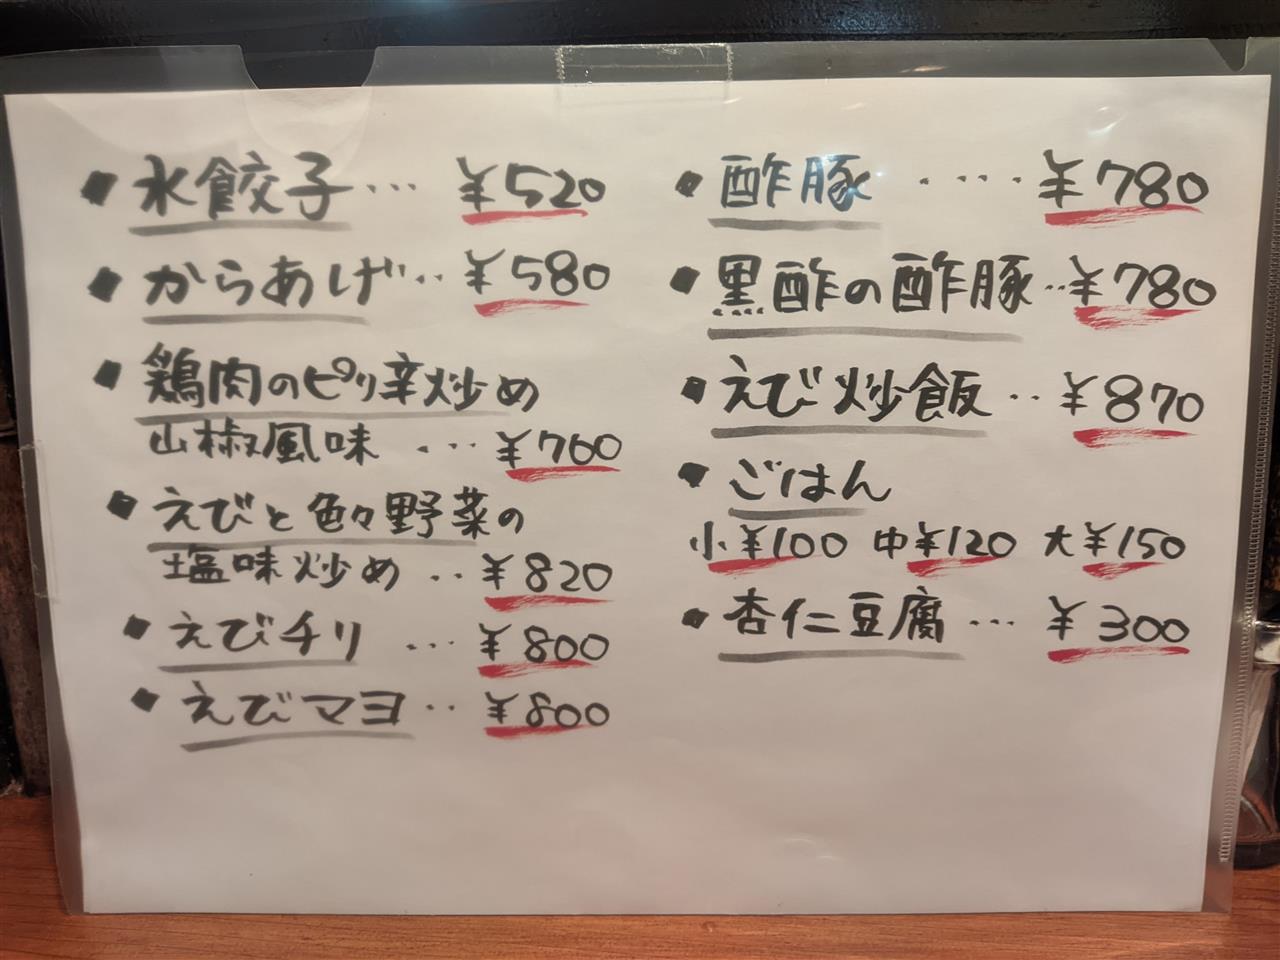 ・水餃子… ¥520
・からあげ‥ ¥580
・鶏肉のピリ辛炒め
山椒風味 … ¥760
・えびと色々野菜の
塩味炒め ‥ ¥820
・えびチリ … ¥800
・えびマヨ ‥ ¥800
・酢豚 ‥‥ ¥780
・黒酢の酢豚‥¥780
・えび炒飯‥ ¥870
・ごはん
小¥100 中¥120 大¥150
・杏仁豆腐… ¥300